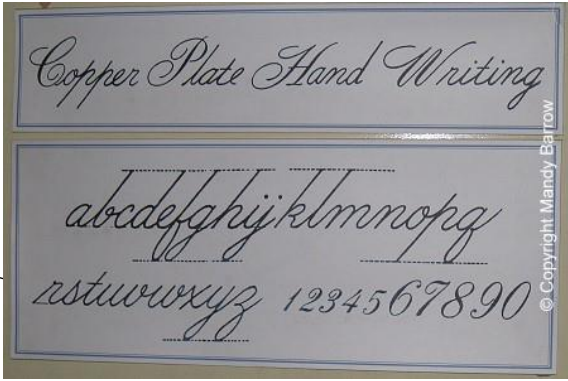 Copper Plate Hand Writing
abcdefghijklmnopq
rstuvwxyz 1234567890
© Copyright Mandy Barrow